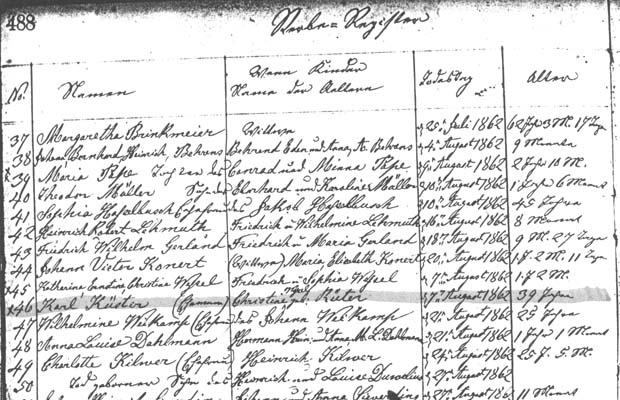 488 Sterbe=Register
No. Namen Wenn Kinder Name der Aeltern Todestag Alter
37 Margaretha Brinkmeier Wittwe 20. Juli 1862 62 Jhr 3 M. 17 Tage
38 Bernhard Heinrich Behrens Behrend Eden und Anna A. Behrens 4. August 1862 9 Monate
39 Maria Pape Tochter des Conrad und Minna Pape 9. August 1862 2 Jhr 10 M.
40 Theodor Müller Sohn des Eberhard und Karoline Müller 10. August 1862 1 Jahr 6 Monate
41 Sophia Haselbusch Ehefrau des Jakob Haselbusch 10. August 1862 45 Jahre
42 Heinrich Robert Lohmuth Friedrich u Wilhelmine Lohmuth 16. August 1862 8 Monate
43 Friedrich Wilhelm Gerland Friedrich u Maria Gerland 18. August 1862 9 M. 27 Tage
44 Johann Victor Konert (Wittwe) Maria Elisabeth Konert 20. August 1862 1 J. 2 M. 11 Tage
45 Katherine Carolina Christine Wessel Friedrich u Sophia Wessel 7. August 1862 1 J. 2 M.
46 Karl Küster (Ehemann) Christine geb. Küster 7. August 1862 39 Jahre
47 Wilhelmine Weikamp (Ehefrau) des Johann Weikamp 21. August 1862 25 Jahre
48 Anna Louise Dahlmann Hermann Heinr. und Anna M. L. Dahlmann 21. August 1862 1 Jahr 1 Monat
49 Charlotte Kilver (Ehefrau) Heinrich Kilver 24. August 1862 25 J. 5 M.
50 Tod geborner Sohn des Heinrich und Louise 27. August 1862
und Anna 27. August 1862 11 Monate